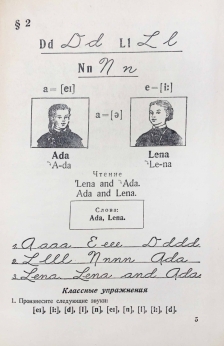 § 2
Dd Dd Ll Ll
Nn Nn
a=[eɪ] e=[i:]
a=[ə]
Ada Lena
`A-da `Le-na
Чтение
'Lena and `Ada.
Ada and Lena.
Слова:
Ada, Lena.
Aaaa Eeee Dddd
Llll Nnnn Ada
Lena Lena and Ada
Классные упражнения
1. Произнесите следующие звуки:
[eɪ], [i:], [d], [l], [n], [eɪ], [n], [l], [i:], [d].
5